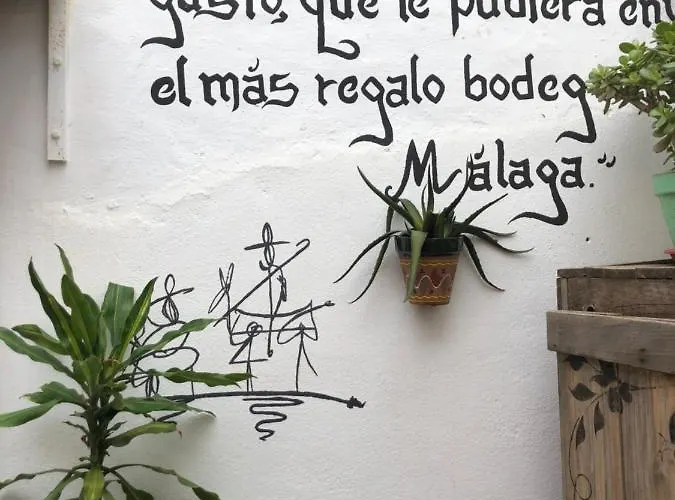 gusto, que le pudiera
el más regalo bodeg
Málaga."